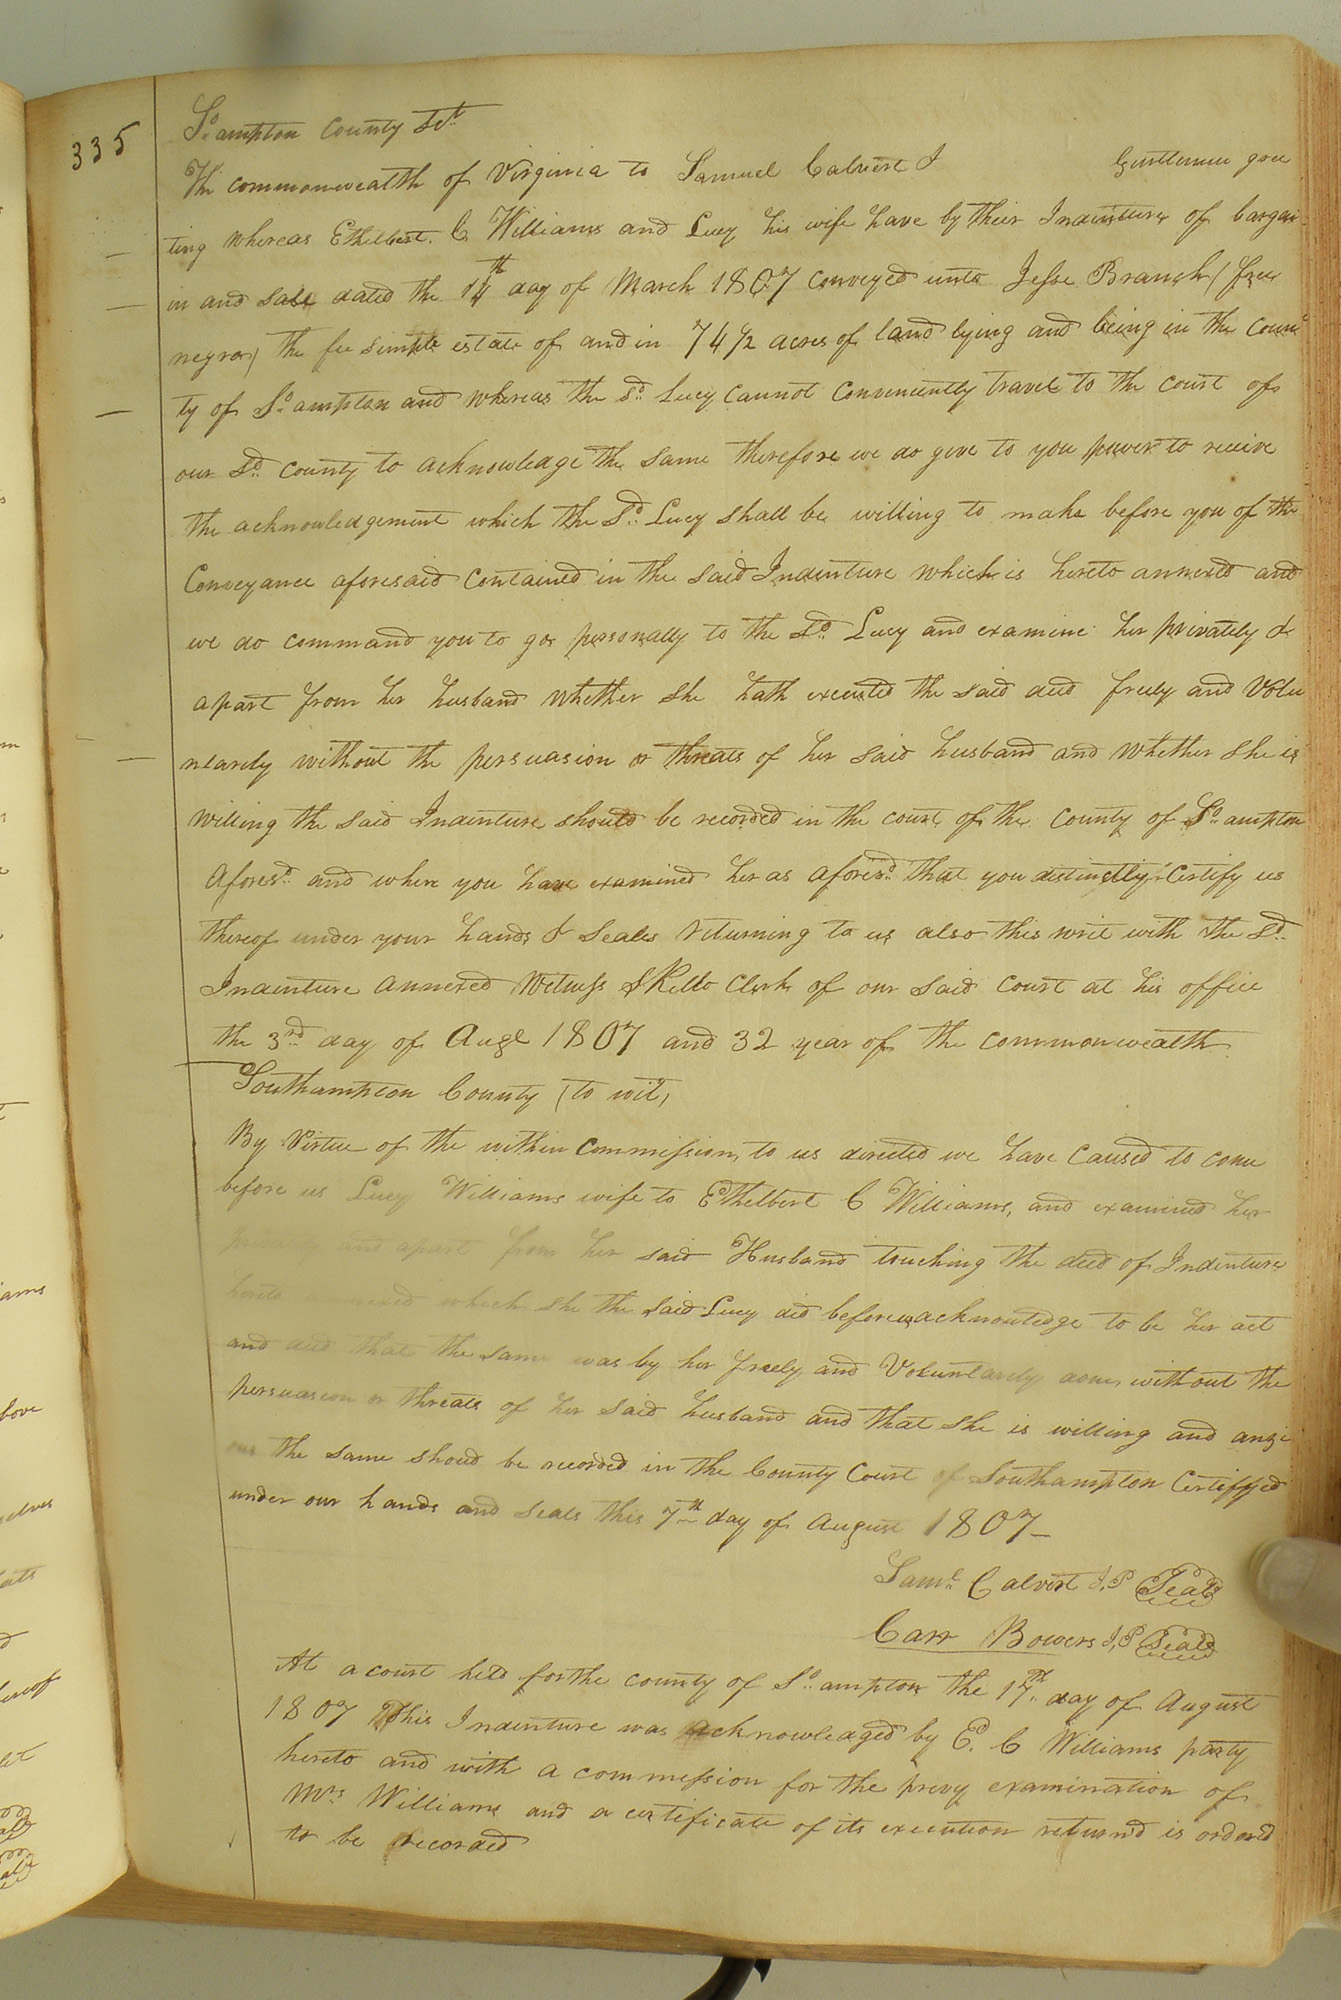 335
So. ampton County Sct.
The commonwealth of Virginia to Samuel Calvert & Gentlemen gree
ting whereas Ethelbert C. Williams and Lucy his wife have by their Indenture of bargai
in and sale dated the 14th day of March 1807 conveyed unto Jesse Branch (free
negro) the fee simple estate of and in 74 1/2 acres of land lying and being in the coun
ty of So. ampton and whereas the sd. Lucy cannot conveniently travel to the court of
our sd. county to acknowledge the same therefore we do give to you power to receive
the acknowledgement which the sd. Lucy shall be willing to make before you of the
Conveyance aforesaid contained in the said Indenture which is hereto annexed and
we do command you to go personally to the sd. Lucy and examine her privately &
apart from her husband whether she hath executed the said deed freely and Volu
ntarily without the persuasion or threats of her said husband and whether she is
willing the said Indenture should be recorded in the court of the County of So. ampton
Aforesd. and when you have examined her as aforesd. that you distinctly Certify us
thereof under your hands & seales returning to us also this writ with the sd.
Indenture annexed Witness S Kello Clerk of our said court at his office
the 3rd day of Augt 1807 and 32 year of the commonwealth
Southampton County (to wit)
By Virtue of the within commission, to us directed we have caused to come
before us Lucy Williams wife to Ethelbert C Williams, and examined her
and apart from her said Husband touching the deed of Indenture
hereto annexed which she the said Lucy did before us acknowledge to be her act
and deed that the same was by her freely and Voluntarily done, without the
persuasion or threats of her said husband and that she is willing and anxi
ous the same shoud be recorded in the County Court of Southampton Certifyed
under our hands and seals this 7th day of August 1807—
Saml. Calvert J,P Seal
Carr Bowers J,P Seal
At a court held for the county of So. ampton the 17th day of August
1807 This Indenture was acknowledged by E. C Williams party
hereto and with a commission for the prevy examination of
Mrs Williams and a certificate of its execution returnd is orderd
to be recorded